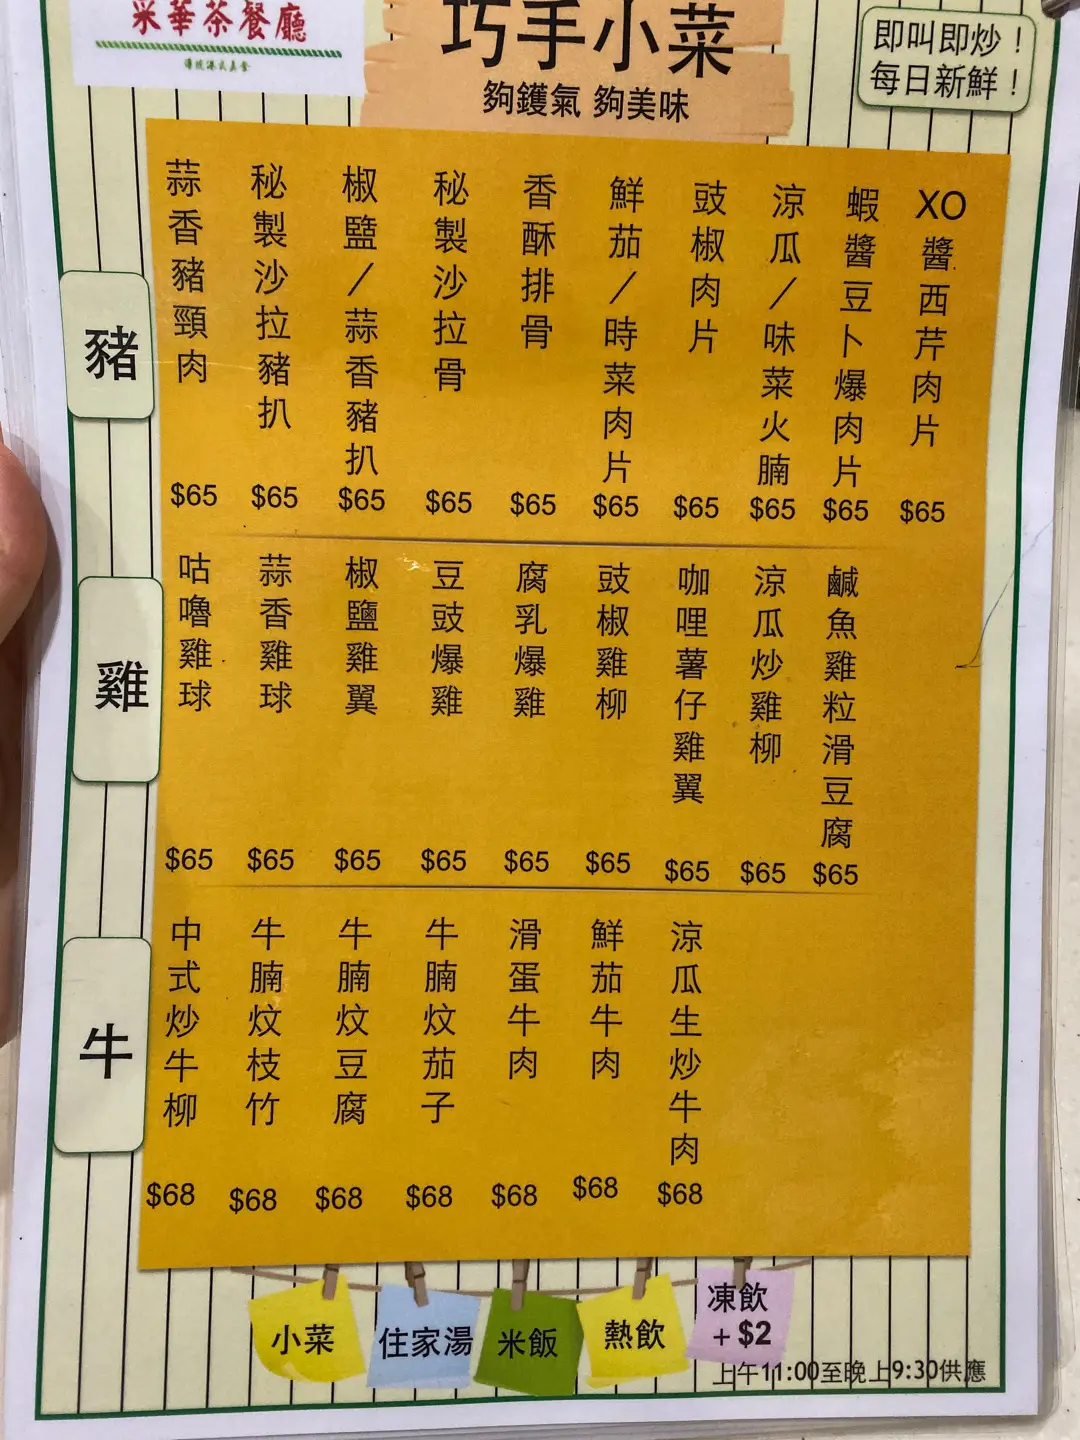 米華茶餐廳
傳統港式美食
巧手小菜
夠鑊氣 夠美味
即叫即炒！
每日新鮮！
豬
蒜香豬頸肉
$65
秘製沙拉豬扒
$65
椒鹽/蒜香豬扒
$65
秘製沙拉骨
$65
香酥排骨
$65
鮮茄/時菜肉片
$65
豉椒肉片
$65
涼瓜/味菜火腩
$65
蝦醬豆卜爆肉片
$65
XO醬西芹肉片
$65
雞
咕嚕雞球
$65
蒜香雞球
$65
椒鹽雞翼
$65
豆豉爆雞
$65
腐乳爆雞
$65
豉椒雞柳
$65
咖哩薯仔雞翼
$65
涼瓜炒雞柳
$65
鹹魚雞粒滑豆腐
$65
牛
中式炒牛柳
$68
牛腩炆枝竹
$68
牛腩炆豆腐
$68
牛腩炆茄子
$68
滑蛋牛肉
$68
鮮茄牛肉
$68
涼瓜生炒牛肉
$68
小菜
住家湯
米飯
熱飲
凍飲
+$2
上午11:00至晚上9:30供應